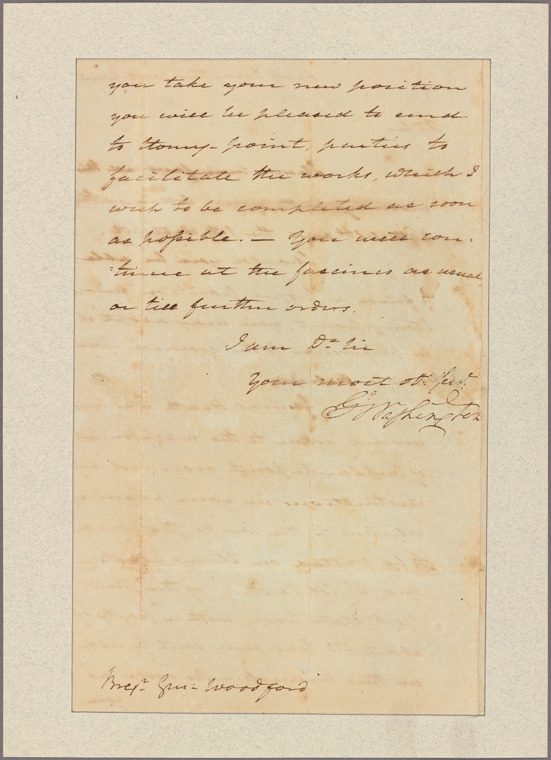 you take your new position
you will be pleased to send
to Stoney-point, parties to
facilitate the works, which I
wish to be completed as soon
as possible. — You will con-
-tinue at the fascines as usual
or till further orders.
I am Dr Sir
Your most obt. Servt.
Go Washington
Brigr. Genl Woodford